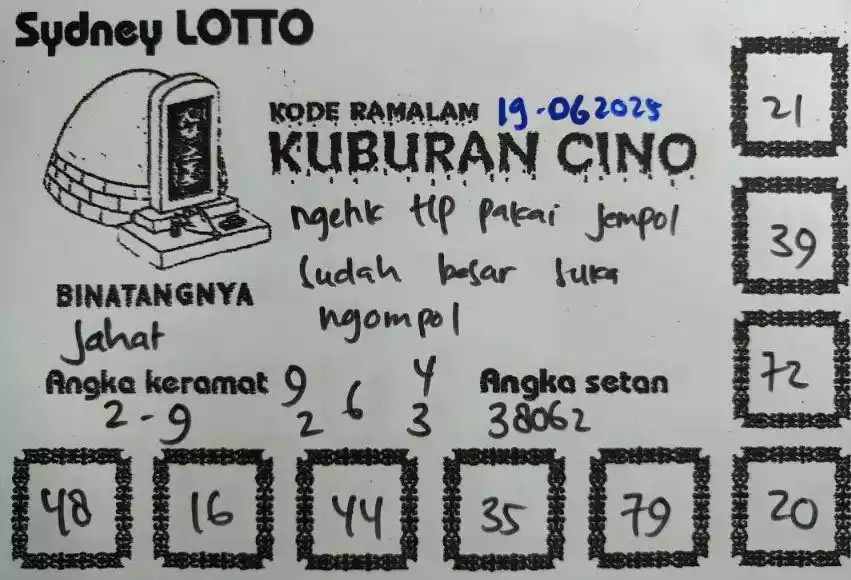 Sydney LOTTO
KODE RAMALAM 19-06 2025
KUBURAN CINO
ngetik Hp pakai Jempol
sudah besar suka
ngompol
BINATANGNYA
Jahat
Angka keramat
2 - 9
9 6 4
2 3
Angka setan
38062
21
39
72
48 16 44 35 79 20